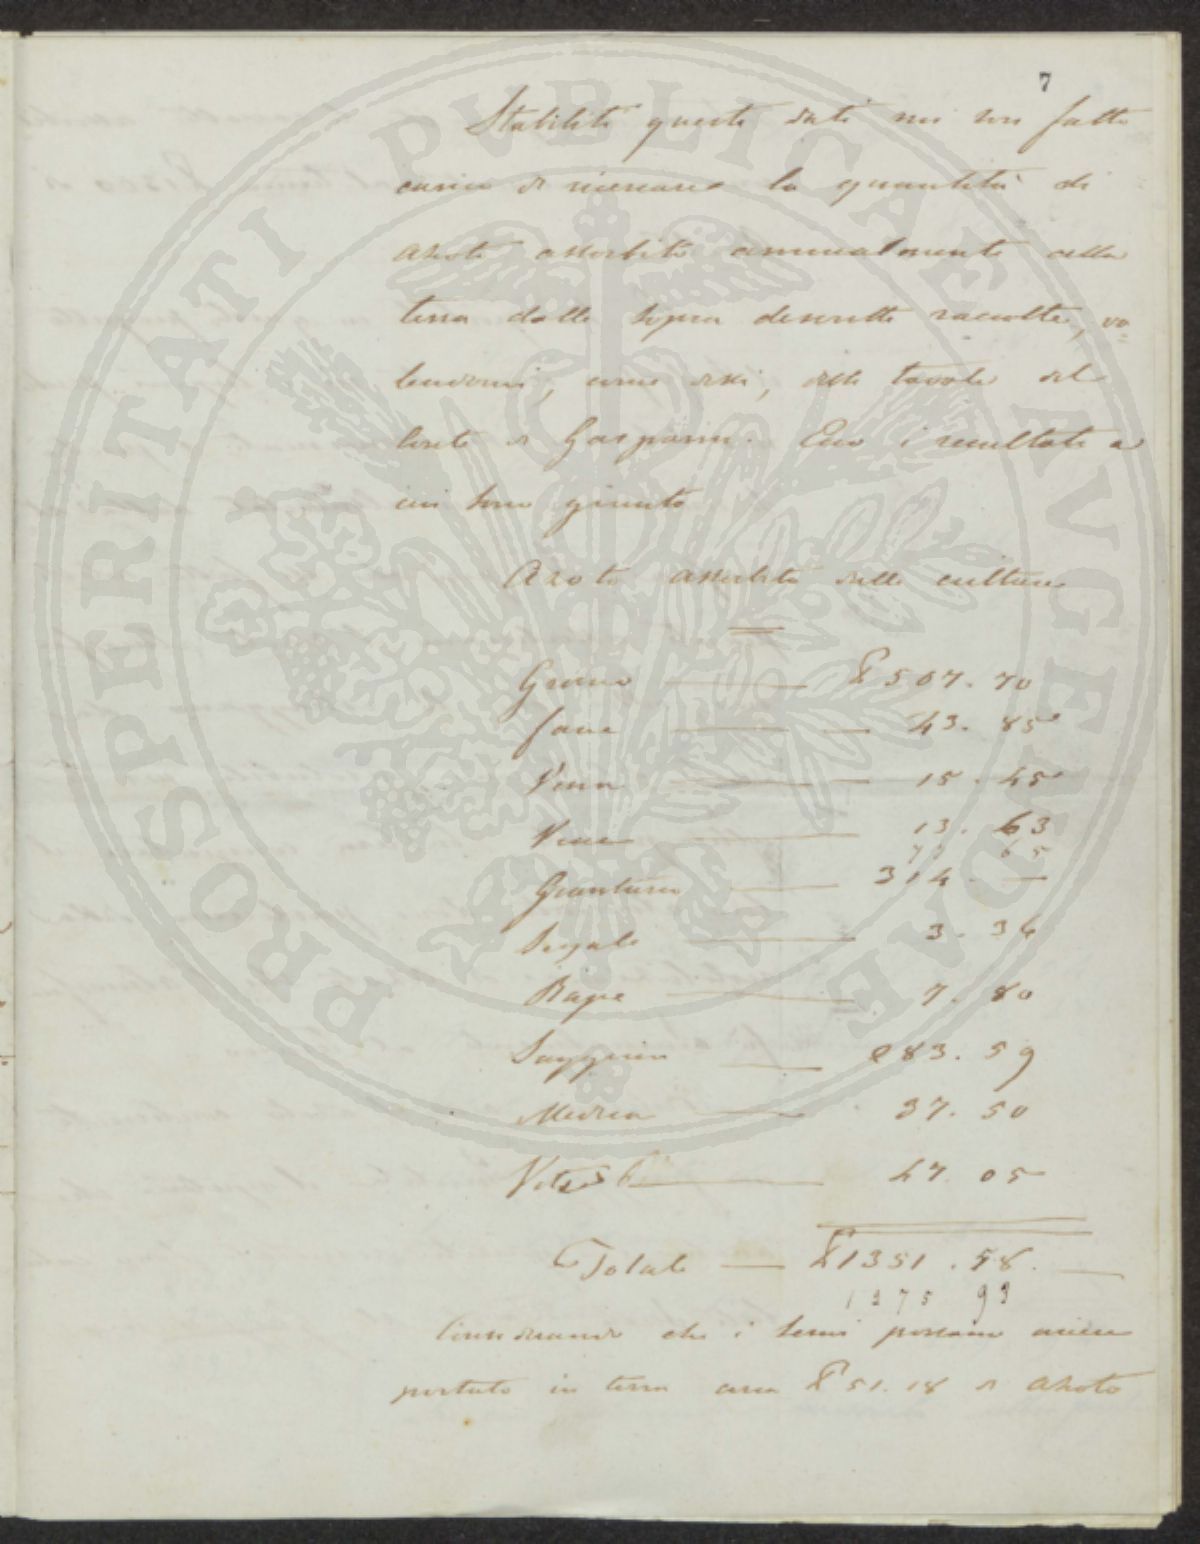 7
Stabiliti questi dati mi son fatto
carico di ricercare la quantità di
azoto assorbito annualmente alla
terra dalle sopra descritte raccolte, va=
lendomi, come dissi, delle tavole del
Conte di Gasparin. Ecco i resultati a
cui sono giunto
Azoto assorbito dalle culture
Grano — £ 507. 70
Fave — 43. 85
Vena — 15. 45
Vecce — 13. 63
65
Granturco — 314. —
Segale — 3. 36
Rape — 7. 80
Saggina — 283. 59
Medica — 37. 50
47. 05
Totale — £ 1351. 58. —
1375 93
Considerando che i semi possano avere
portato in terra circa £ 51. 18 di azoto
PROSPERITATI PVBLICAE AVGENDAE